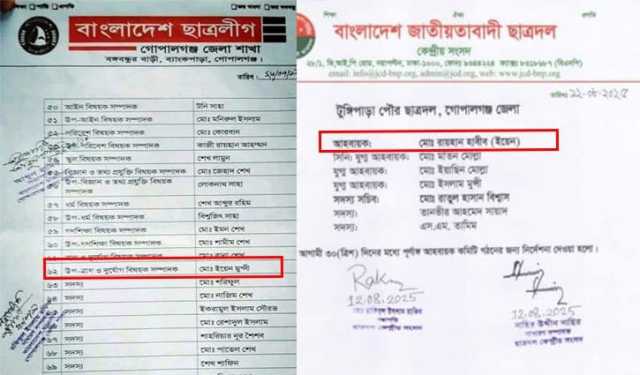 বাংলাদেশ ছাত্রলীগ
গোপালগঞ্জ জেলা শাখা
বঙ্গবন্ধুর বাড়ী, ব্যাংকপাড়া, গোপালগঞ্জ।
তারিখ:
৫০ আইন বিষয়ক সম্পাদক টনি সাহা
৫১ উপ-আইন বিষয়ক সম্পাদক মোঃ মনিরুল ইসলাম
পরিবেশ বিষয়ক সম্পাদক মোঃ কোরবান
উপ-পরিবেশ বিষয়ক সম্পাদক কাজী রায়হান আহম্মদ
স্কুল বিষয়ক সম্পাদক শেখ লামুন
বিজ্ঞান ও তথ্য প্রযুক্তি বিষয়ক সম্পাদক মোঃ জেহাদ শেখ
উপ-বিজ্ঞান ও তথ্য প্রযুক্তি বিষয়ক সম্পাদক লোকনাথ সাহা
৫৭ ধর্ম বিষয়ক সম্পাদক শেখ আব্দুর রহিম
৫৮ উপ-ধর্ম বিষয়ক সম্পাদক বিশ্বজিৎ সাহা
৫৯ গণশিক্ষা বিষয়ক সম্পাদক মোঃ ইমন শেখ
৬০ উপ-গণশিক্ষা বিষয়ক সম্পাদক মোঃ শামীম শেখ
৬২ উপ-ত্রাণ ও দুর্যোগ বিষয়ক সম্পাদক মোঃ ইয়েন মুন্সী
৬৩ সদস্য মোঃ শরিফুল
৬৪ সদস্য মোঃ নাজিম শেখ
সদস্য ইকরামুল ইসলাম সৌরভ
সদস্য মোঃ রেশাদুল ইসলাম
৬৭ সদস্য শাহরিয়ার নূর শৈশব
৬৮ সদস্য মোঃ পাভেল শেখ
৬৯ সদস্য শেখ শাফিন
শিক্ষা ঐক্য প্রগতি
বাংলাদেশ জাতীয়তাবাদী ছাত্রদল
কেন্দ্রীয় সংসদ
২৮/১, ভি,আই,পি রোড, নয়াপল্টন, ঢাকা-১০০০
email: info@jcd-bnp.org, admin@jcd.org, web: www.jcd-bnp.org
তারিখ: ১২-০৮-২০২৫
টুঙ্গিপাড়া পৌর ছাত্রদল, গোপালগঞ্জ জেলা
আহবায়ক: মোঃ রায়হান হাবীব (ইয়েন)
সিনি: যুগ্ম আহবায়ক: মোঃ মতিন মোল্লা
যুগ্ম আহবায়ক: মোঃ ইয়াছিন মোল্লা
যুগ্ম আহবায়ক: মোঃ ইসলাম মুন্সী
সদস্য সচিব: মোঃ রাতুল হাসান বিশ্বাস
সদস্য: তানভীর আহমেদ সায়াদ
সদস্য: এস.এম. তামিম
আগামী ৩০(ত্রিশ) দিনের মধ্যে পূর্ণাঙ্গ আহবায়ক কমিটি গঠনের জন্য নির্দেশনা দেওয়া হলো।
Rakib
12.08.2025
সভাপতি
ছাত্রদল কেন্দ্রীয় সংসদ
12.08.2025
নাছির উদ্দীন নাছির
সাধারণ সম্পাদক
ছাত্রদল কেন্দ্রীয় সংসদ